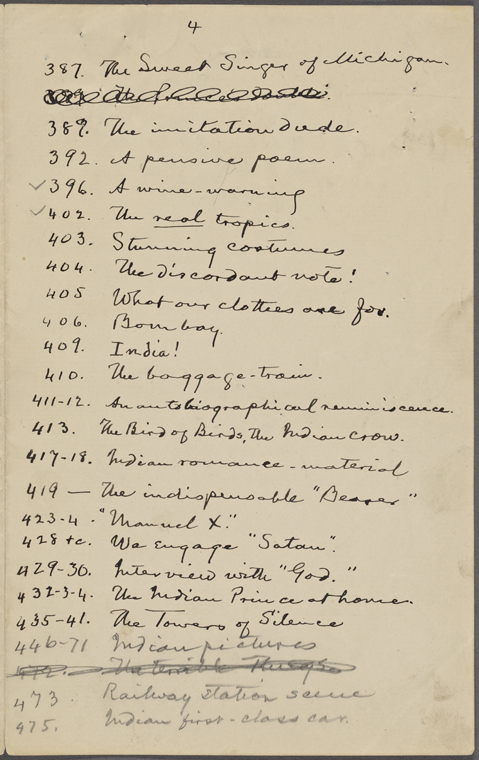 4
387. The Sweet Singer of Michigan.
389. The imitation dude.
392. A pensive poem.
396. A wine-warning
402. The real tropics.
403. Stunning costumes
404. The discordant note!
405 What our clothes are for.
406. Bombay.
409. India!
410. The baggage-train.
411-12. An autobiographical reminiscence.
413. The Bird of Birds, the Indian crow.
417-18. Indian romance-material
419 — The indispensable "Bearer"
423-4. "Manuel X."
428 +c. We engage "Satan".
429-30. Interview with "God."
432-3-4. The Indian Prince at home.
435-41. The Towers of Silence
446-71 Indian pictures
473. Railway station scene
475. Indian first-class car.